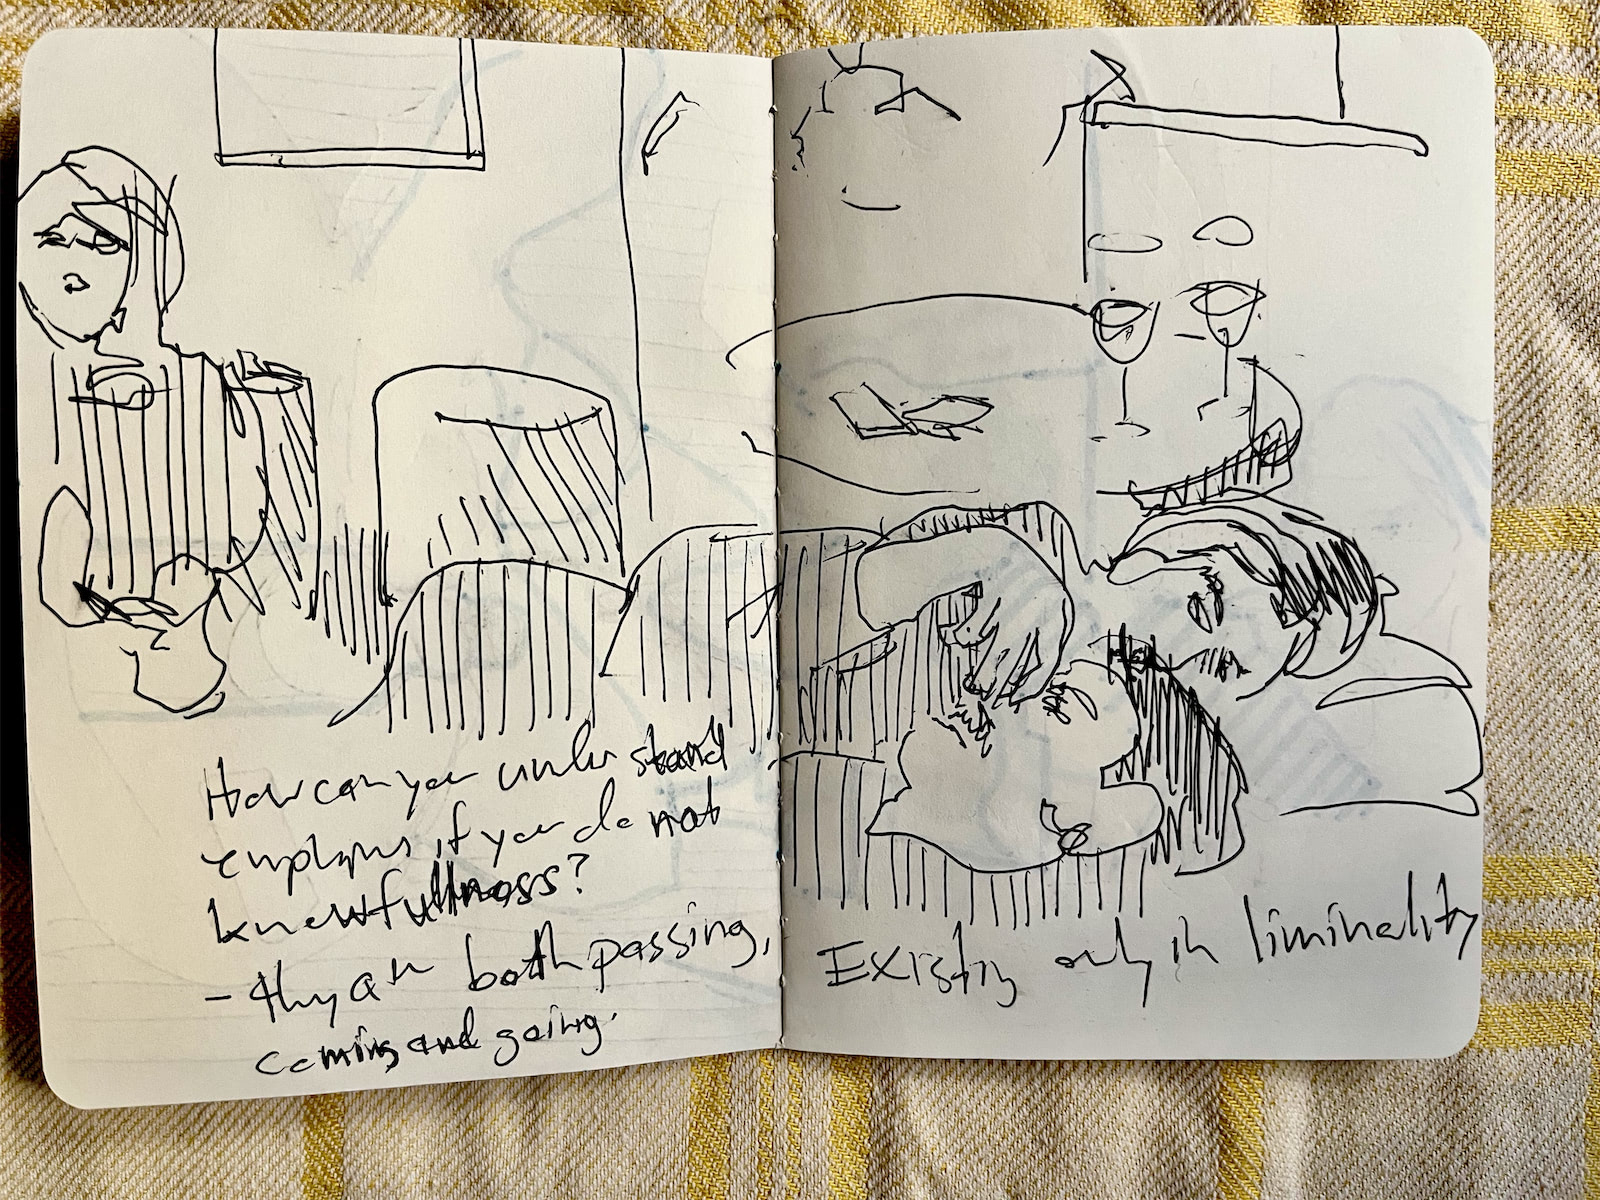 How can you understand
emptyness if you do not
know fullness?
- they are both passing,
coming and going.
Existing only in liminality